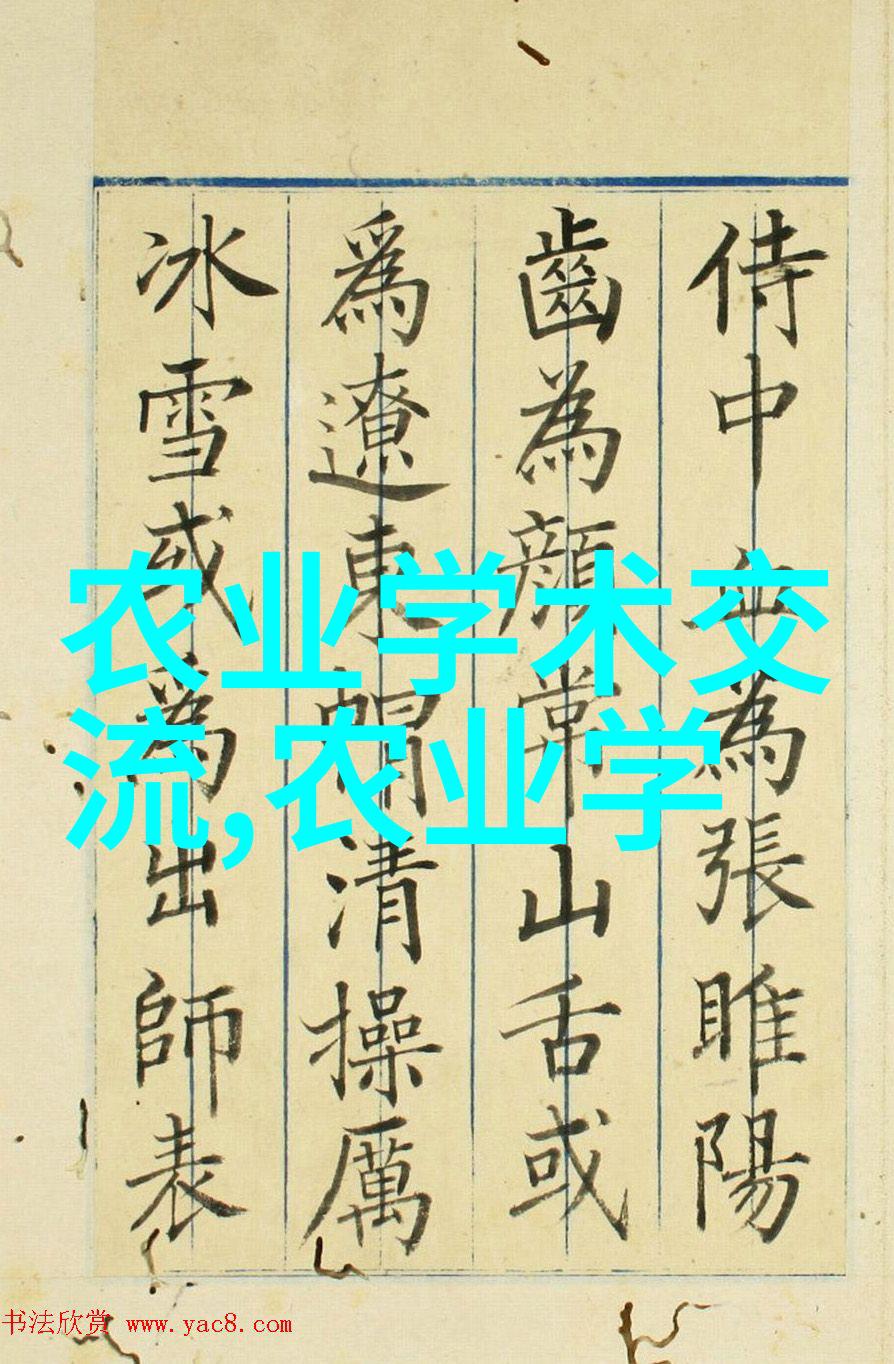 侍中血為張睢陽
齒為顏常山舌或
爲遼東帽清操厲
冰雪或爲出師表
农业学术交
流,农业学
书法欣赏 www.yac8.com